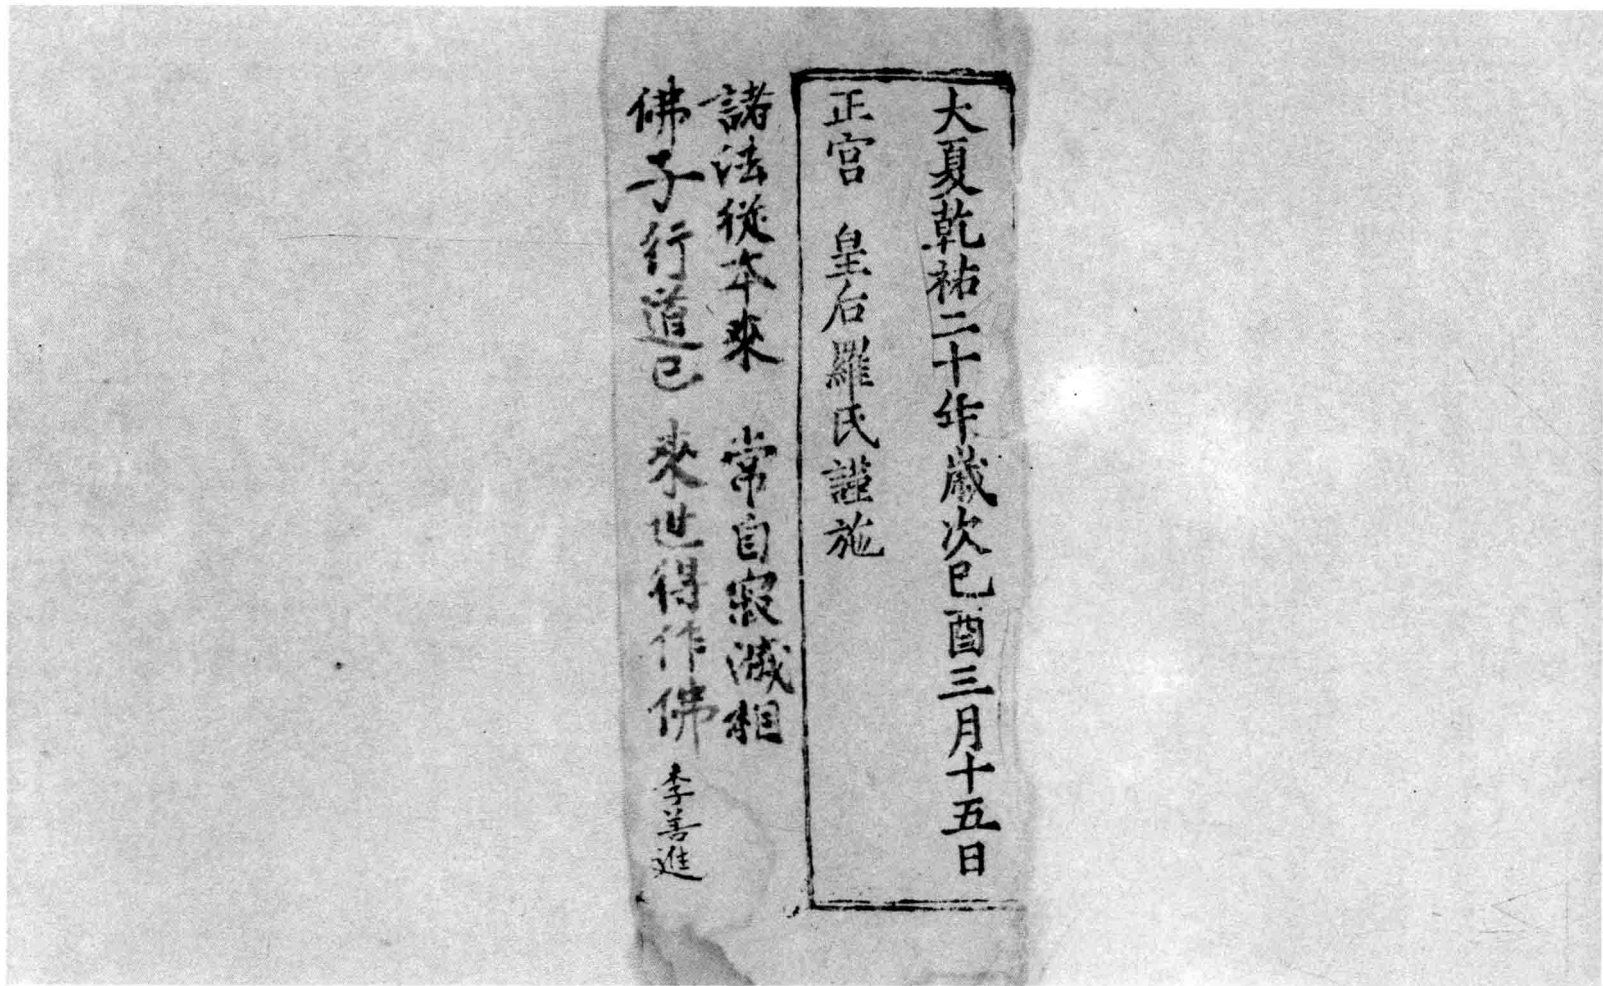 大夏乾祐二十年歲次己酉三月十五日
正宮　皇后羅氏謹施
諸法從本來　常自寂滅相
佛子行道已　來世得作佛　李善進